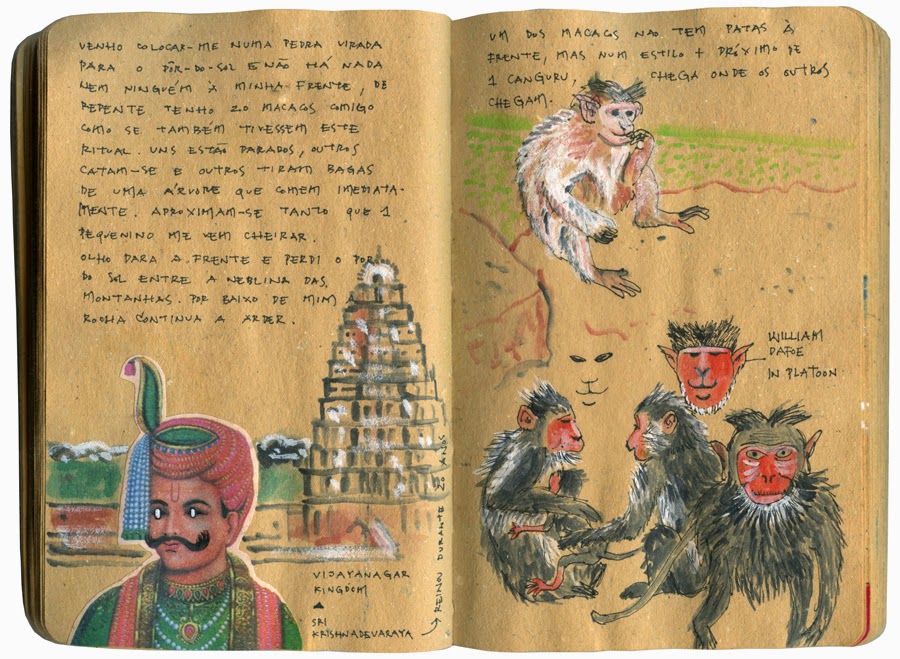 VENHO COLOCAR-ME NUMA PEDRA VIRADA
PARA O PÔR-DO-SOL E NÃO HÁ NADA
NEM NINGUÉM À MINHA FRENTE, DE
REPENTE TENHO 20 MACACOS COMIGO
COMO SE TAMBÉM TIVESSEM ESTE
RITUAL. UNS ESTÃO PARADOS, OUTROS
CATAM-SE E OUTROS TIRAM BAGAS
DE UMA ÁRVORE QUE COMEM IMEDIATA-
MENTE. APROXIMAM-SE TANTO QUE 1
PEQUENINO ME VEM CHEIRAR.
OLHO PARA A FRENTE E PERDI O POR
DO SOL ENTRE A NEBLINA DAS
MONTANHAS. POR BAIXO DE MIM A
ROCHA CONTINUA A ARDER.
VIJAYANAGAR
KINGDOM
SRI
KRISHNADEVARAYA
REINOU DURANTE 20 ANOS
UM DOS MACACOS NÃO TEM PATAS À
FRENTE, MAS NUM ESTILO + PRÓXIMO DE
1 CANGURU, CHEGA ONDE OS OUTROS
CHEGAM.
WILLIAM
DAFOE
IN PLATOON